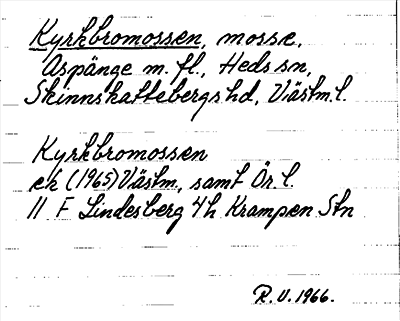 Kyrkbromossen, mosse,
Aspänge m. fl., Heds sn,
Skinnskattebergs hd, Västm. l.
Kyrkbromossen
ek (1965) Västm., samt Ör. l.
11 F Lindesberg 4h Krampen Stn
R. U. 1966.